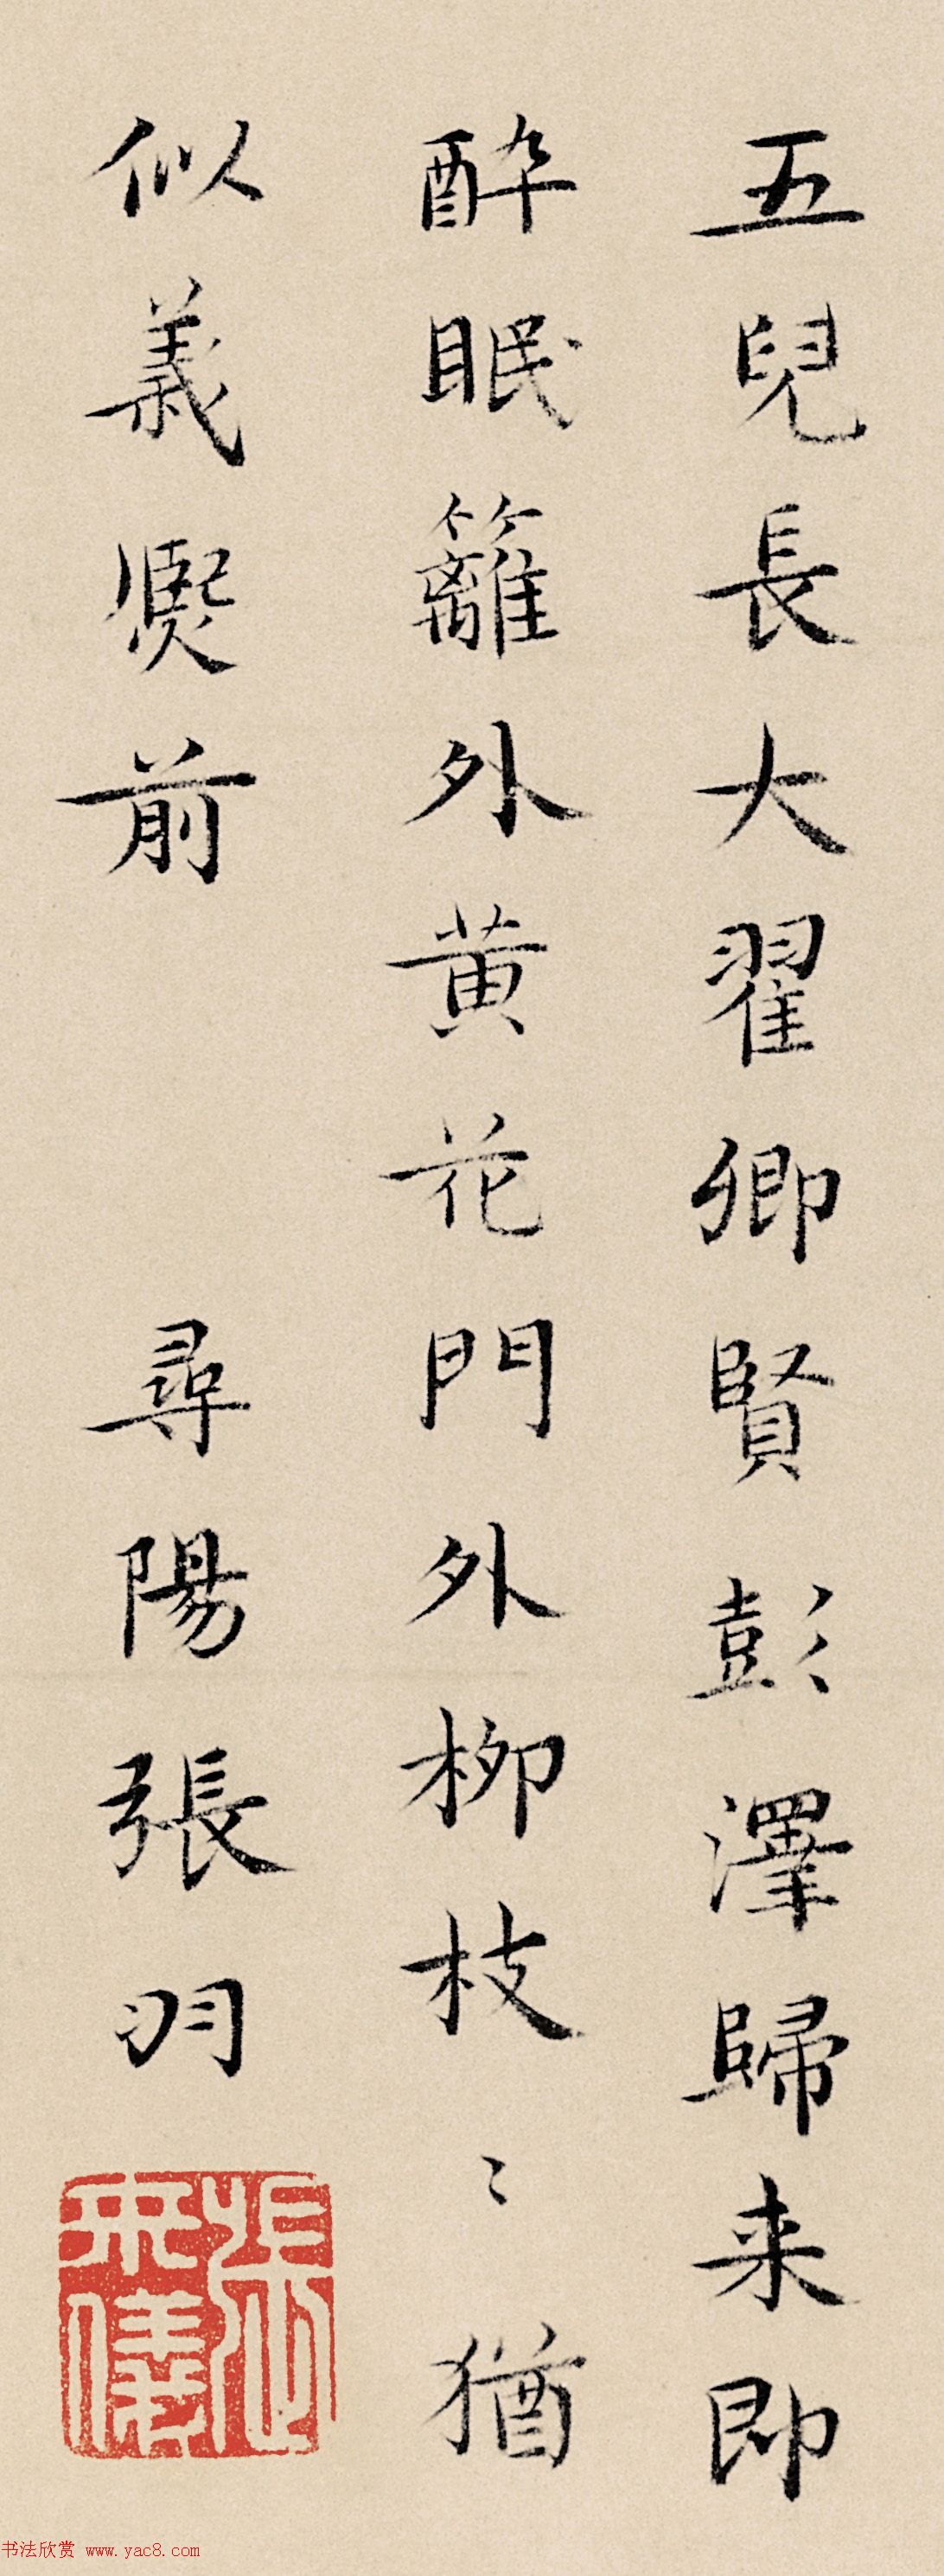 五兒長大翟卿賢彭澤歸来即
醉眠籬外黄花門外柳枝〻猶
似義熈前
尋陽張羽
书法欣赏 www.yac8.com